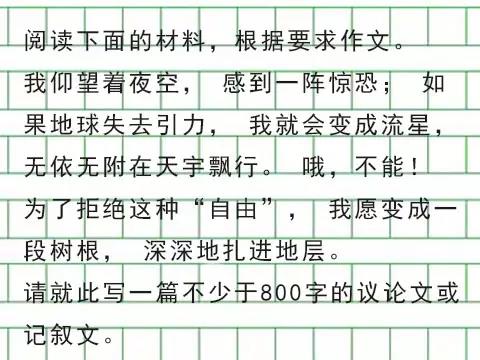 阅读下面的材料，根据要求作文。
我仰望着夜空， 感到一阵惊恐； 如
果地球失去引力， 我就会变成流星，
无依无附在天宇飘行。 哦，不能！
为了拒绝这种“自由”， 我愿变成一
段树根， 深深地扎进地层。
请就此写一篇不少于800字的议论文或
记叙文。